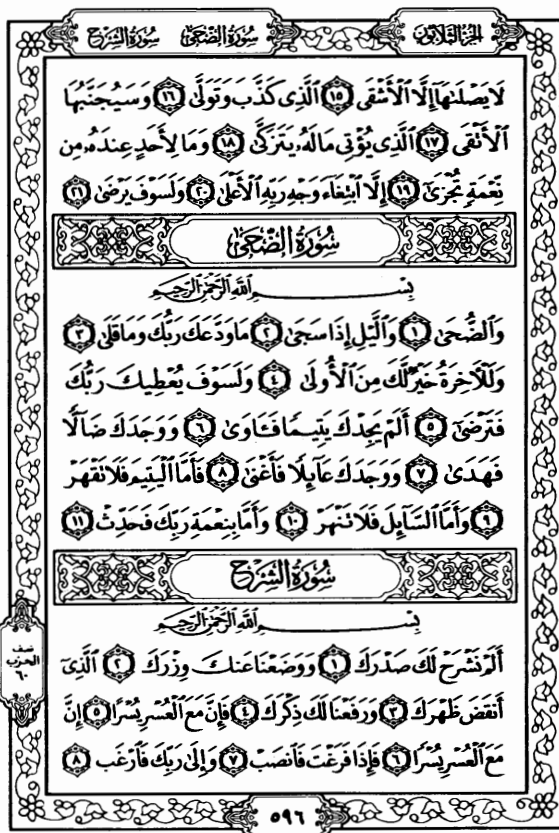 الجزء الثلاثون
سورة الضحى
سورة الشرح
لَا يَصْلَىٰهَآ إِلَّا ٱلْأَشْقَى ١٥ ٱلَّذِى كَذَّبَ وَتَوَلَّىٰ ١٦ وَسَيُجَنَّبُهَا
ٱلْأَتْقَى ١٧ ٱلَّذِى يُؤْتِى مَالَهُۥ يَتَزَكَّىٰ ١٨ وَمَا لِأَحَدٍ عِندَهُۥ مِن
نِّعْمَةٍ تُجْزَىٰٓ ١٩ إِلَّا ٱبْتِغَآءَ وَجْهِ رَبِّهِ ٱلْأَعْلَىٰ ٢٠ وَلَسَوْفَ يَرْضَىٰ ٢١
سورة الضحى
بسم الله الرحمن الرحيم
وَٱلضُّحَىٰ ١ وَٱلَّيْلِ إِذَا سَجَىٰ ٢ مَا وَدَّعَكَ رَبُّكَ وَمَا قَلَىٰ ٣
وَلَلْـَٔاخِرَةُ خَيْرٌ لَّكَ مِنَ ٱلْأُولَىٰ ٤ وَلَسَوْفَ يُعْطِيكَ رَبُّكَ
فَتَرْضَىٰٓ ٥ أَلَمْ يَجِدْكَ يَتِيمًا فَـَٔاوَىٰ ٦ وَوَجَدَكَ ضَآلًّا
فَهَدَىٰ ٧ وَوَجَدَكَ عَآئِلًا فَأَغْنَىٰ ٨ فَأَمَّا ٱلْيَتِيمَ فَلَا تَقْهَرْ
٩ وَأَمَّا ٱلسَّآئِلَ فَلَا تَنْهَرْ ١٠ وَأَمَّا بِنِعْمَةِ رَبِّكَ فَحَدِّثْ ١١
سورة الشرح
بسم الله الرحمن الرحيم
أَلَمْ نَشْرَحْ لَكَ صَدْرَكَ ١ وَوَضَعْنَا عَنكَ وِزْرَكَ ٢ ٱلَّذِىٓ
أَنقَضَ ظَهْرَكَ ٣ وَرَفَعْنَا لَكَ ذِكْرَكَ ٤ فَإِنَّ مَعَ ٱلْعُسْرِ يُسْرًا ٥ إِنَّ
مَعَ ٱلْعُسْرِ يُسْرًا ٦ فَإِذَا فَرَغْتَ فَٱنصَبْ ٧ وَإِلَىٰ رَبِّكَ فَٱرْغَب ٨
نصف
الحزب
٦٠
٥٩٦